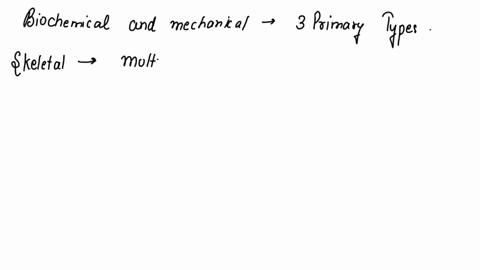 Biochemical and mechanical → 3 Primary Types.
Skeletal → mult